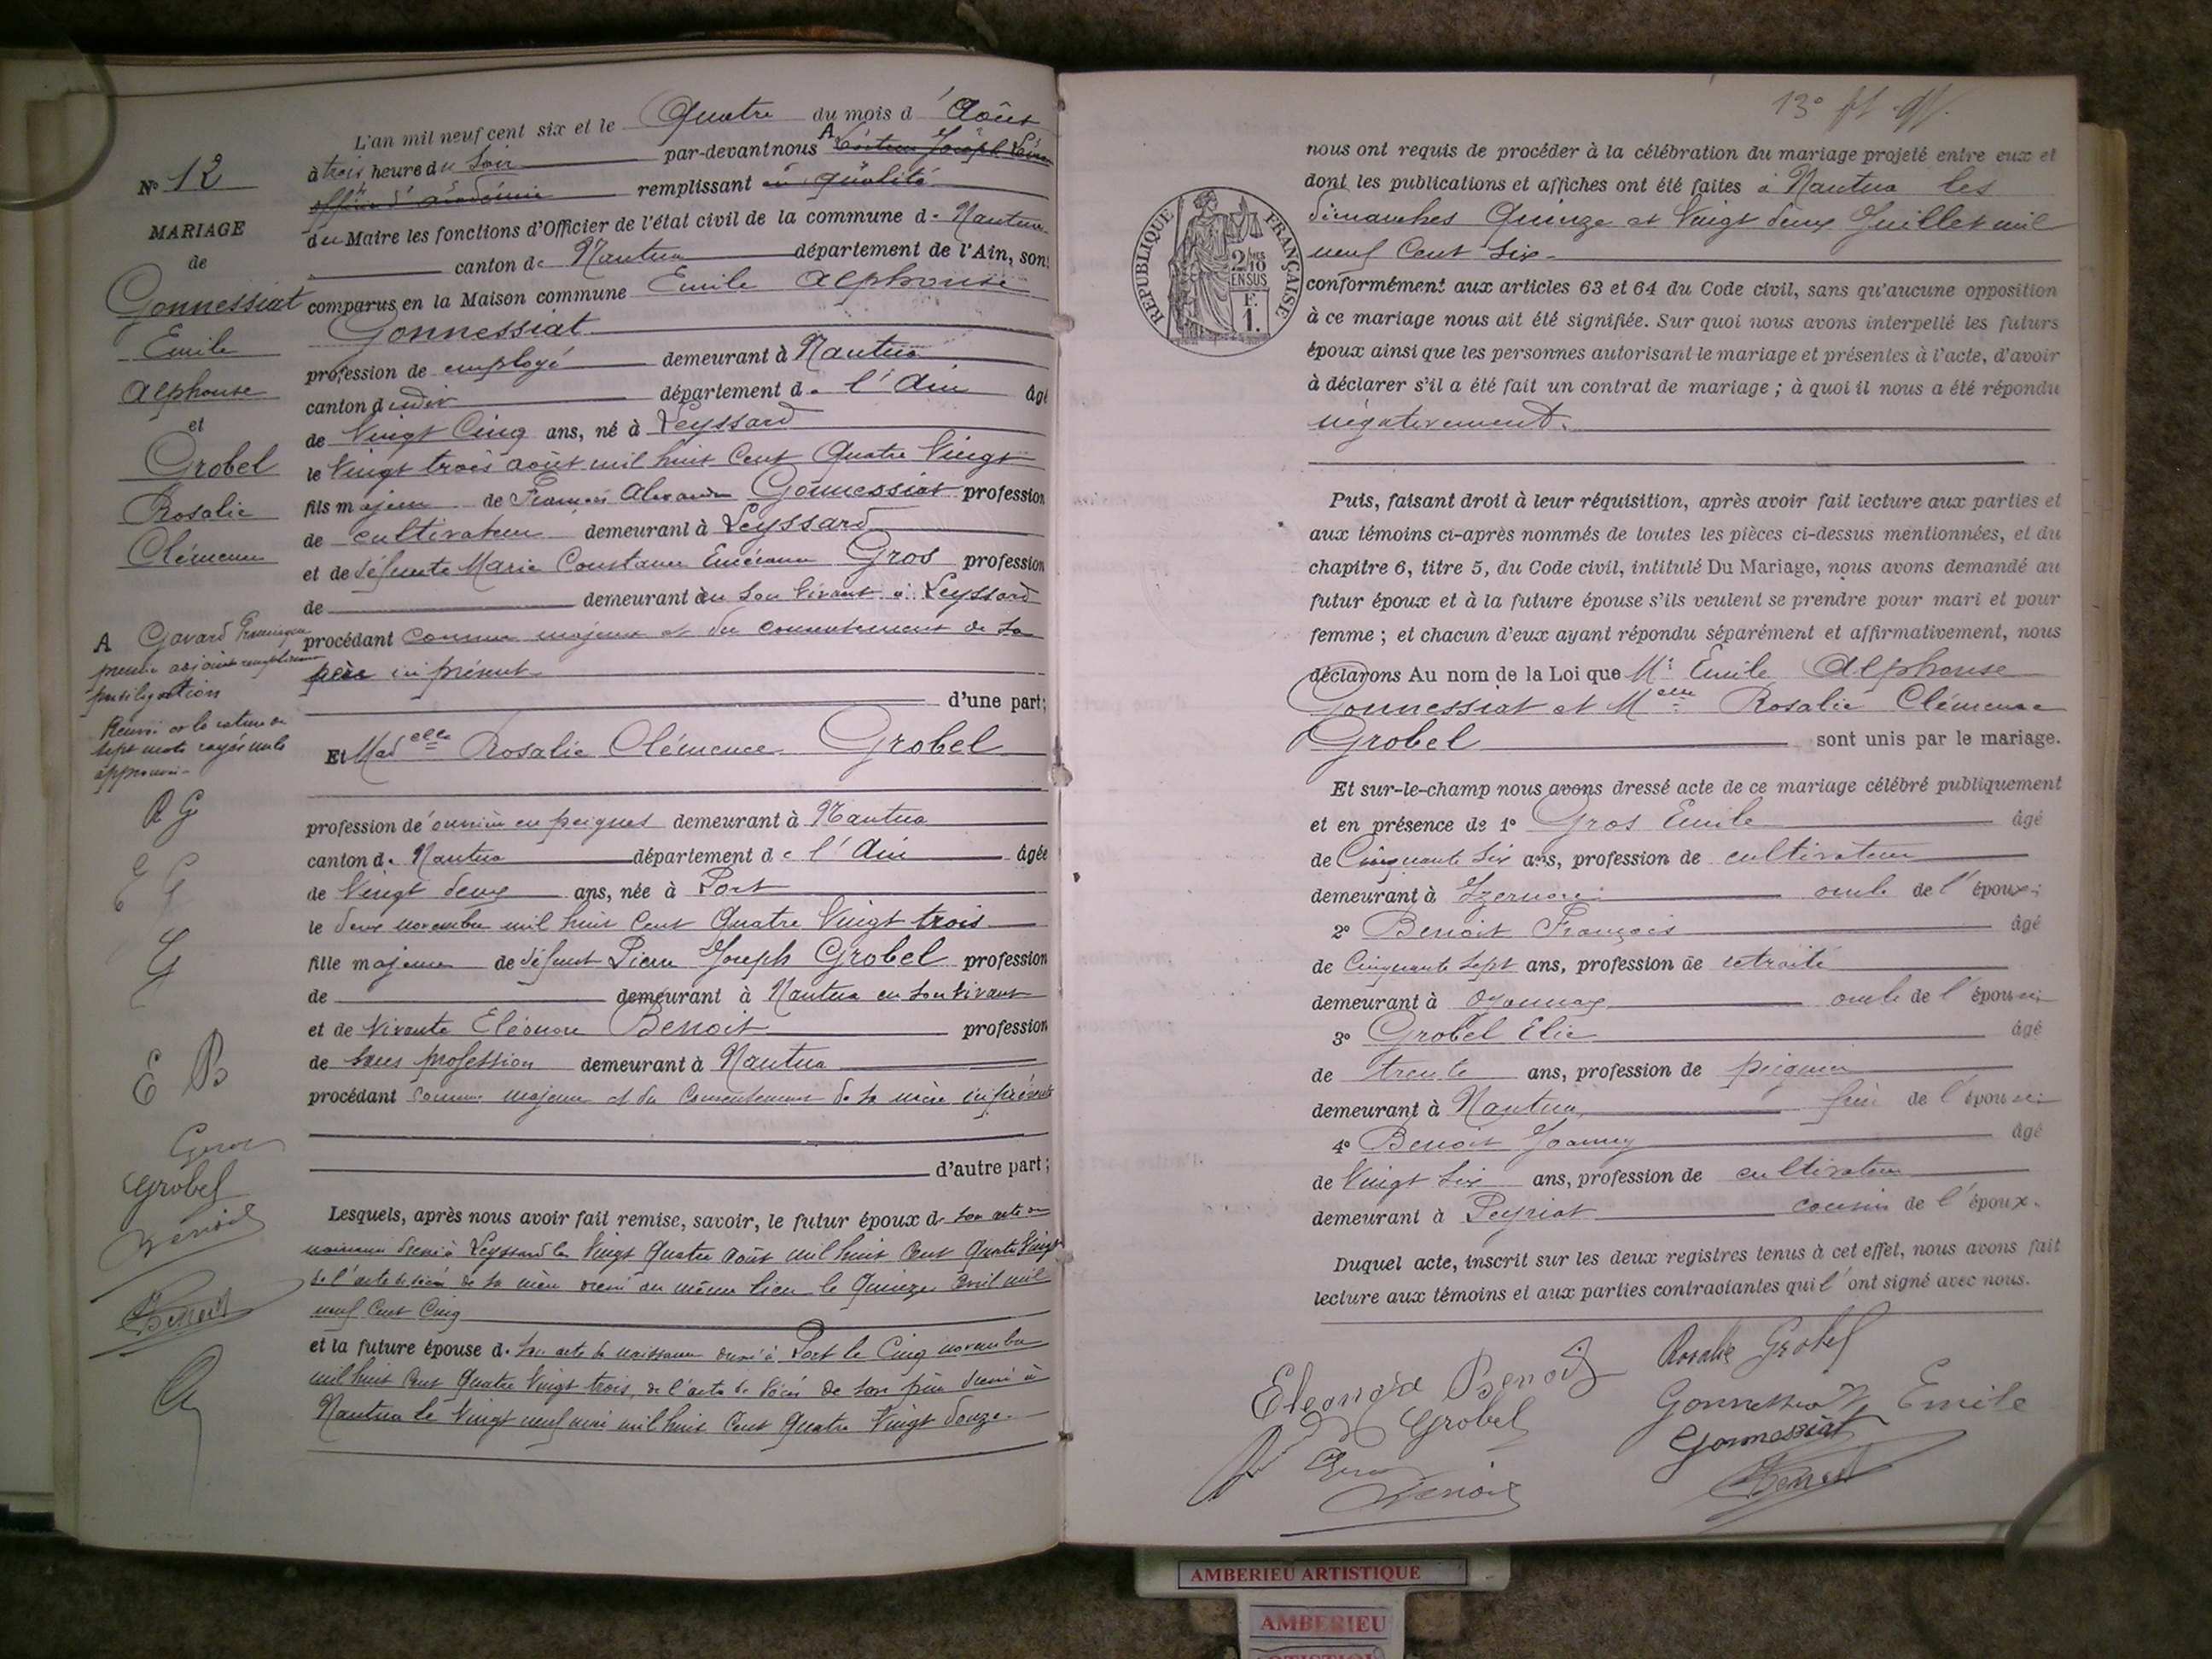 N° 12
MARIAGE
de
Gonnessiat
Emile
Alphonse
et
Grobel
Rosalie
Clémence
A Gavard
premier adjoint remplissant
par délégation
sept mots rayés nuls
RG
E G
G
E B
Gros
Grobel
Benoit
Benoit
L'an mil neuf cent six et le Quatre du mois d'Août
à trois heure du Soir par-devant nous A Joseph
officier d'académie remplissant en qualité
du Maire les fonctions d'Officier de l'état civil de la commune de Nantua
canton de Nantua département de l'Ain, sont
comparus en la Maison commune Emile Alphonse
Gonnessiat
profession de employé demeurant à Nantua
canton dudit département de l'Ain âgé
de Vingt Cinq ans, né à Leyssard
le Vingt trois août mil huit Cent Quatre Vingt
fils majeur de François Alexandre Gonnessiat profession
de cultivateur demeurant à Leyssard
et de défunte Marie Constance Gros profession
de demeurant en son vivant à Leyssard
procédant comme majeur et du consentement de son
père ici présent
d'une part;
Et Mad elle Rosalie Clémence Grobel
profession d'ouvrière en peignes demeurant à Nantua
canton de Nantua département de l'Ain âgée
de Vingt deux ans, née à Port
le deux novembre mil huit Cent Quatre Vingt trois
fille majeure de défunt Pierre Joseph Grobel profession
de demeurant à Nantua en son vivant
et de vivante Eléonore Benoit profession
de sans profession demeurant à Nantua
procédant comme majeure et du consentement de sa mère ici présente
d'autre part;
Lesquels, après nous avoir fait remise, savoir, le futur époux de son acte de
naissance dressé à Leyssard le Vingt Quatre août mil huit Cent Quatre Vingt
de l'acte de décès de sa mère dressé au même lieu le Quinze Avril mil
neuf Cent Cinq
et la future épouse de son acte de naissance dressé à Port le Cinq novembre
mil huit Cent Quatre Vingt trois, de l'acte de décès de son père dressé à
Nantua le Vingt neuf mai mil huit Cent Quatre Vingt douze
13°
REPUBLIQUE FRANÇAISE
2/10
EN SUS
F.
1.
nous ont requis de procéder à la célébration du mariage projeté entre eux et
dont les publications et affiches ont été faites à Nantua les
dimanches Quinze et Vingt deux Juillet mil
neuf Cent Six
conformément aux articles 63 et 64 du Code civil, sans qu'aucune opposition
à ce mariage nous ait été signifiée. Sur quoi nous avons interpellé les futurs
époux ainsi que les personnes autorisant le mariage et présentes à l'acte, d'avoir
à déclarer s'il a été fait un contrat de mariage ; à quoi il nous a été répondu
négativement.
Puis, faisant droit à leur réquisition, après avoir fait lecture aux parties et
aux témoins ci-après nommés de toutes les pièces ci-dessus mentionnées, et du
chapitre 6, titre 5, du Code civil, intitulé Du Mariage, nous avons demandé au
futur époux et à la future épouse s'ils veulent se prendre pour mari et pour
femme ; et chacun d'eux ayant répondu séparément et affirmativement, nous
déclarons Au nom de la Loi que Mr Emile Alphonse
Gonnessiat et Melle Rosalie Clémence
Grobel sont unis par le mariage.
Et sur-le-champ nous avons dressé acte de ce mariage célébré publiquement
et en présence de 1° Gros Emile âgé
de Cinquante Six ans, profession de cultivateur
demeurant à Izernore oncle de l'époux;
2° Benoit François âgé
de Cinquante Sept ans, profession de retraité
demeurant à Oyonnax oncle de l'épouse;
3° Grobel Elie âgé
de trente ans, profession de peigneur
demeurant à Nantua frère de l'épouse;
4° Benoit Joanny âgé
de Vingt Six ans, profession de cultivateur
demeurant à Peyriat cousin de l'époux.
Duquel acte, inscrit sur les deux registres tenus à cet effet, nous avons fait
lecture aux témoins et aux parties contractantes qui l'ont signé avec nous.
Eleonore Benoit Rosalie Grobel
Grobel Gonnessiat Emile
Gros Gonnessiat
Benoit Benoit
AMBERIEU ARTISTIQUE
AMBERIEU
ARTISTIQUE